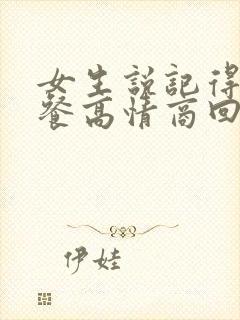 女生说记得
餐高情商回
伊娃